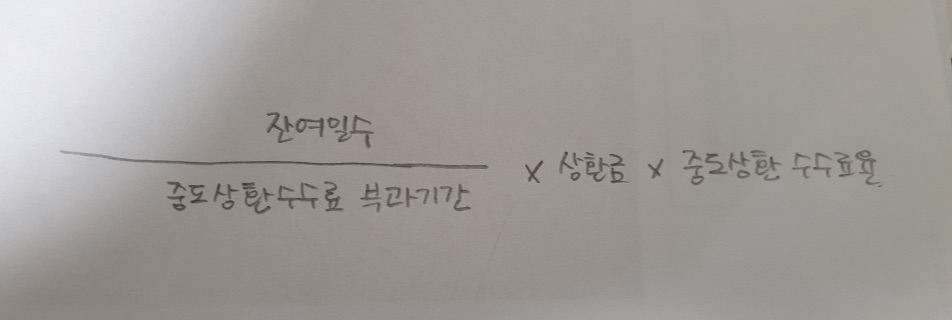 잔여일수
중도상환수수료 부과기간
x 상환금 x 중도상환 수수료율